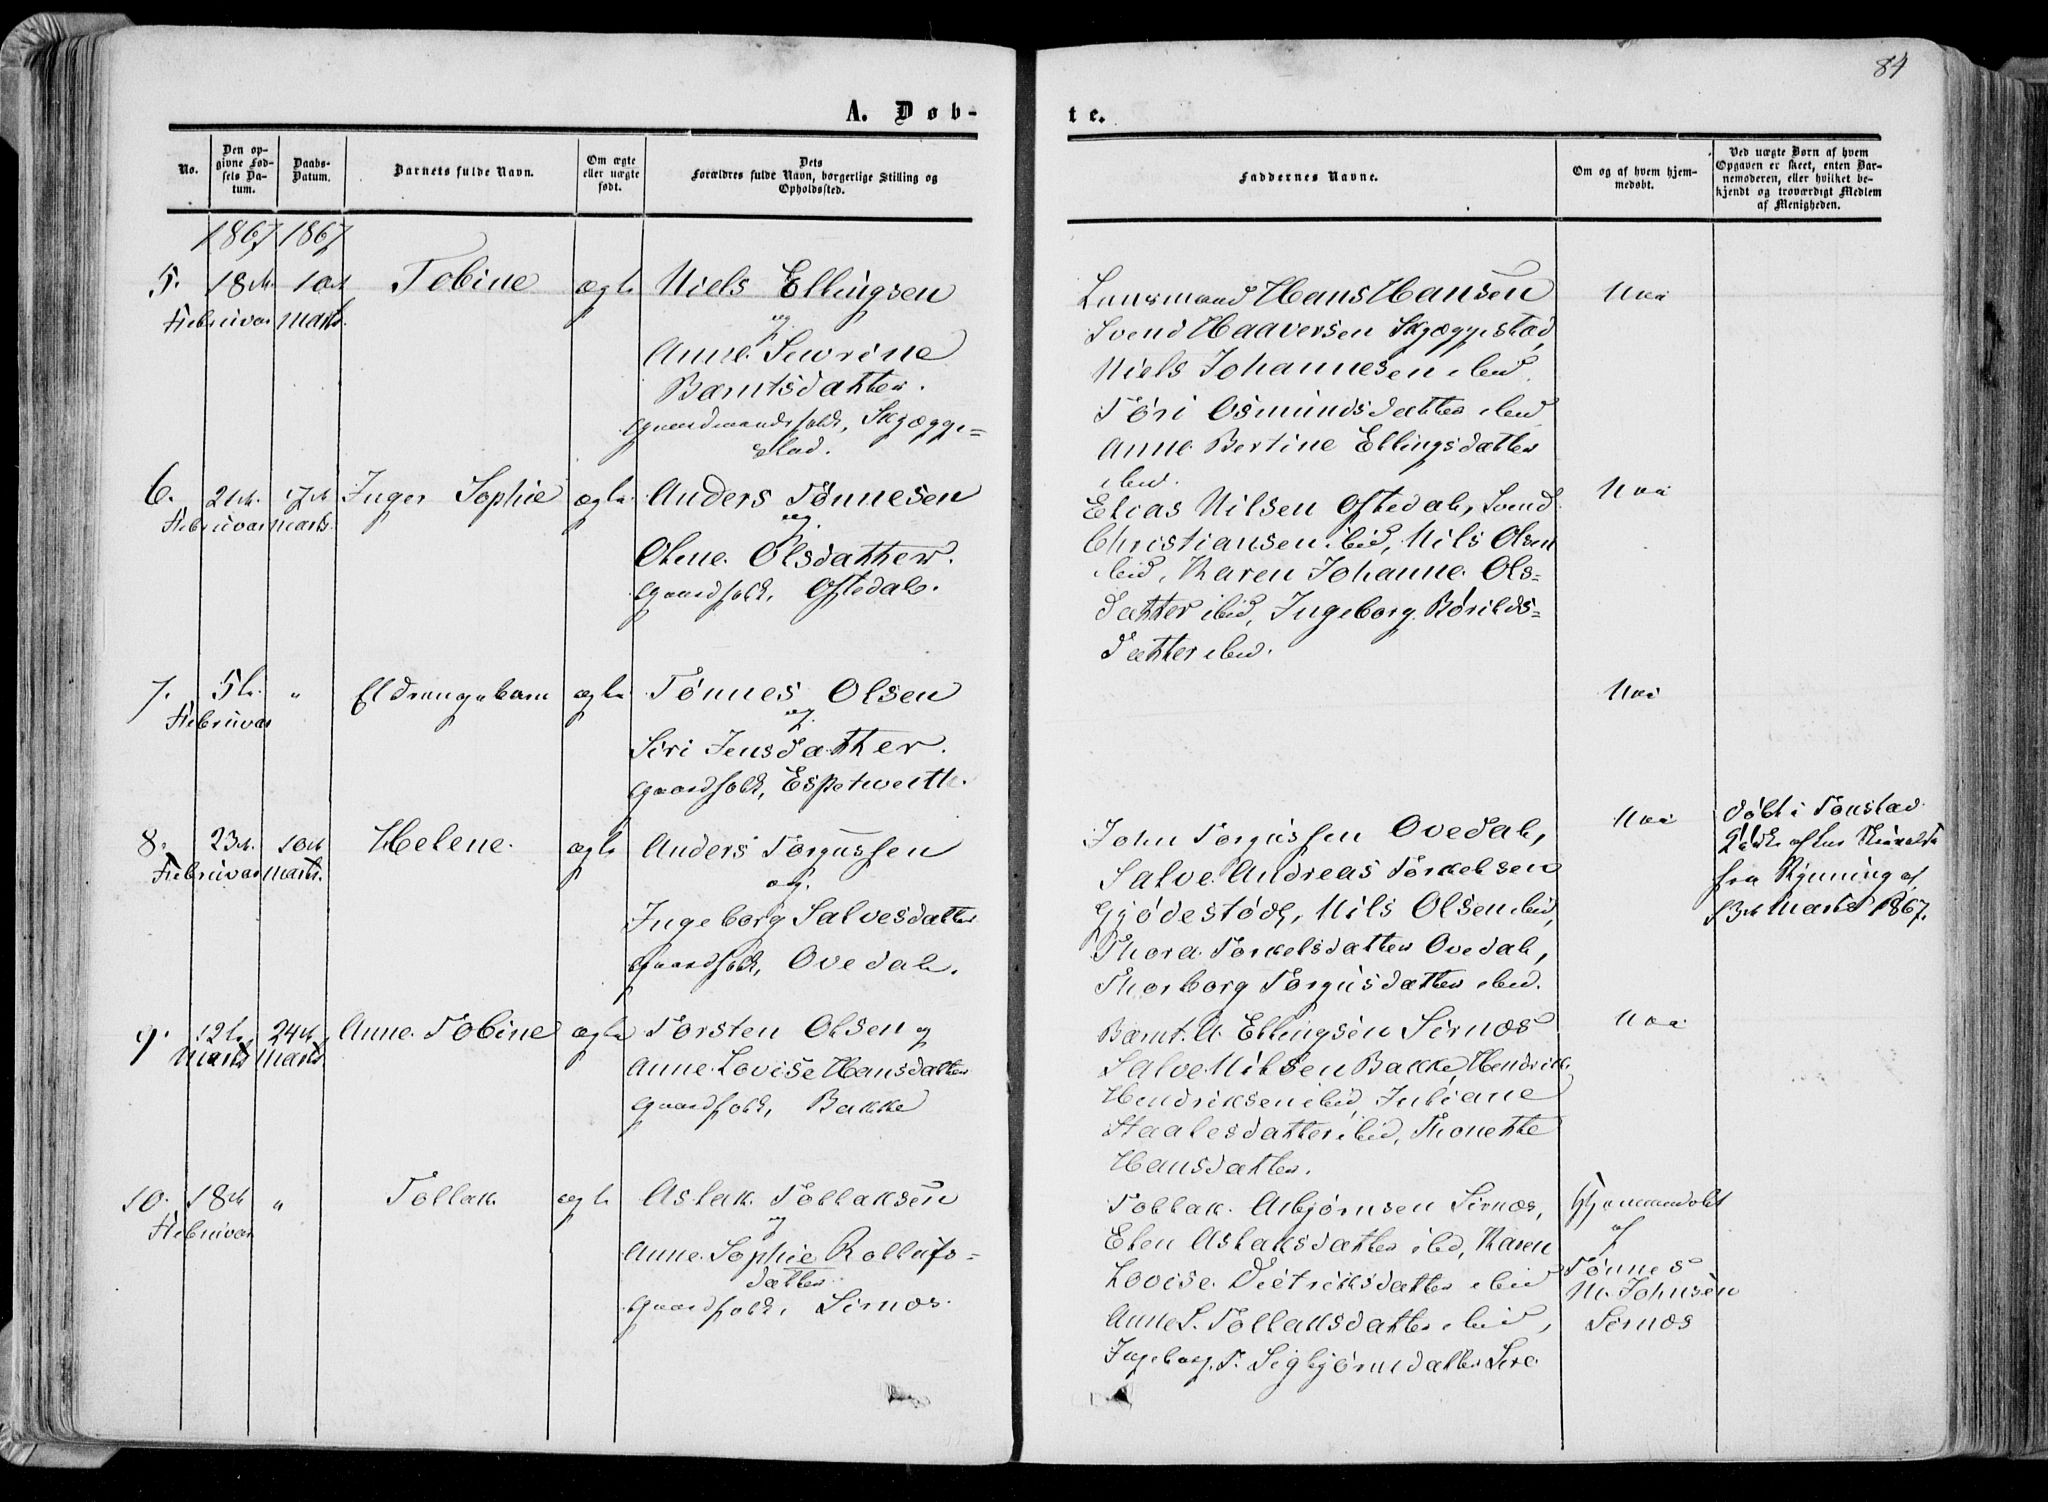 84
A. Døb-
te.
No.
Den op-
givne Fød-
sels Da-
tum.
Daabs-
Datum.
Barnets fulde Navn.
Om ægte
eller uægte
født.
Dets
Forældres fulde Navn, borgerlige Stilling og
Opholdssted.
Faddernes Navne.
Om og af hvem hjem-
medøbt.
Ved uægte Børn af hvem
Opgaven er skeet, enten Bar-
nemoderen, eller hvilket be-
kjendt og troværdigt Medlem
af Menigheden.
1867 1867
5. 18de 10de Tobine ægte Niels Ellingsen
Februar Marts.
og
Anne Sevrine
Berntsdatter.
Gaardmandsfolk, Skjægge=
stad.
Lensmand Hans Hansen
Svend Haaversen Skjæggestad,
Niels Johannesen ibid.
Tøri Osmundsdatter ibid
Anne Bertine Ellingsdatter
ibid.
Nei
6. 21de 17de Inger Sophie ægte Anders Tønnesen
Februar Marts.
og
Olene Olsdatter.
Gaardfolk, Oftedal.
Elias Nilsen Oftedal, Svend
Christiansen ibid, Nils Olsen
ibid, Karen Johanne Ols=
datter ibid, Ingeborg Børilds=
datter ibid.
Nei
7. 5te " Et Drengebarn ægte Tønnes Olsen
Februar
og
Siri Jensdatter.
Gaardfolk, Espetveit.
Nei
8. 23de 10de Helene. ægte Anders Torgussen
Februar Marts.
og
Ingeborg Salvesdatter
Gaardfolk, Ovedal.
John Torgussen Ovedal,
Salve Andreas Torkelsen
Gjødestøl, Nils Olsen ibid,
Thora Torkelsdatter Ovedal,
Thorborg Torgusdatter ibid.
Nei
Døbt i Tonstad
fra Rynning af
13de Marts 1867.
9. 12te 24de Anne Tobine ægte Torsten Olsen og
Marts Marts
Anne Lovise Hansdatter
Gaardfolk, Bakke
Bernt A. Ellingsen Sirnæs
Salve Nilsen Bakke Hendrik
Hendriksen ibid, Juliane
Staalesdatter ibid, Thonette
Hansdatter.
Nei
10. 18de " Tollak ægte Aslak Tollaksen
Februar
og
Anne Sophie Rollufs=
datter
Gaardfolk, Sirnæs.
Tollak Asbjørnsen Sirnæs,
Elen Aslaksdatter ibid, Karen
Lovise Dietriksdatter ibid
Anne S. Tollaksdatter ibid,
Ingeborg T. Sigbjørnsdatter Sire
Hjemmedøbt
af
Tønnes
M. Johnsen
Sirnæs